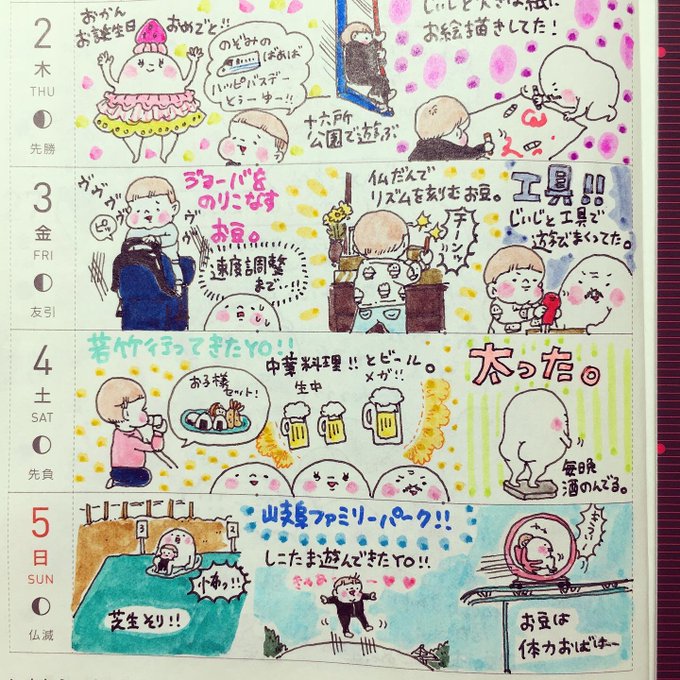 2
木
THU
先勝
おかん
お誕生日
おめでと!!
のぞみの
ばあば
ハッピバスデー
とぅーゆー!!
十六所
公園で遊ぶ
じいじと大きな紙に
お絵描きしてた!
3
金
FRI
友引
ヴヴヴヴヴ
ピッ
ジョーバを
のりこなす
お豆。
速度調整
まで…!!
仏だんで
リズムを刻むお豆。
チーンッ
工具!!
じいじと工具で
遊びまくってた。
4
土
SAT
先負
若竹行ってきたYO!!
お子様
セット!
中華料理!!とビール。
生中
メガ!!
太った。
毎晩
酒のんでる。
5
日
SUN
仏滅
3
2
怖っ!!
芝生そり!!
ファミリーパーク!!
しこたま遊んできたYO!!
お豆は
体力おばけ〜